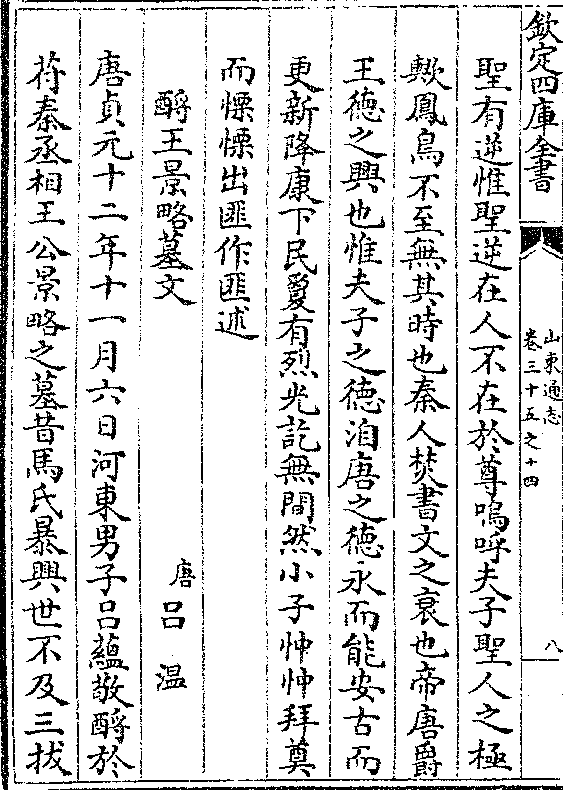 欽定四庫全書
山東通志
卷三十五之十四
八
聖有逆惟聖逆在人不在於尊嗚呼夫子聖人之極
歟鳳鳥不至無其時也秦人焚書文之衰也帝唐爵
王德之興也惟夫子之德洎唐之德永而能安古而
更新降康下民爰有烈光訖無間然小子忡忡拜奠
而慄慄出匪作匪述
酹王景略墓文
唐 呂温
唐貞元十二年十一月六日河東男子呂蘊敬酹於
苻秦丞相王公景略之墓昔馬氏暴興世不及三拔